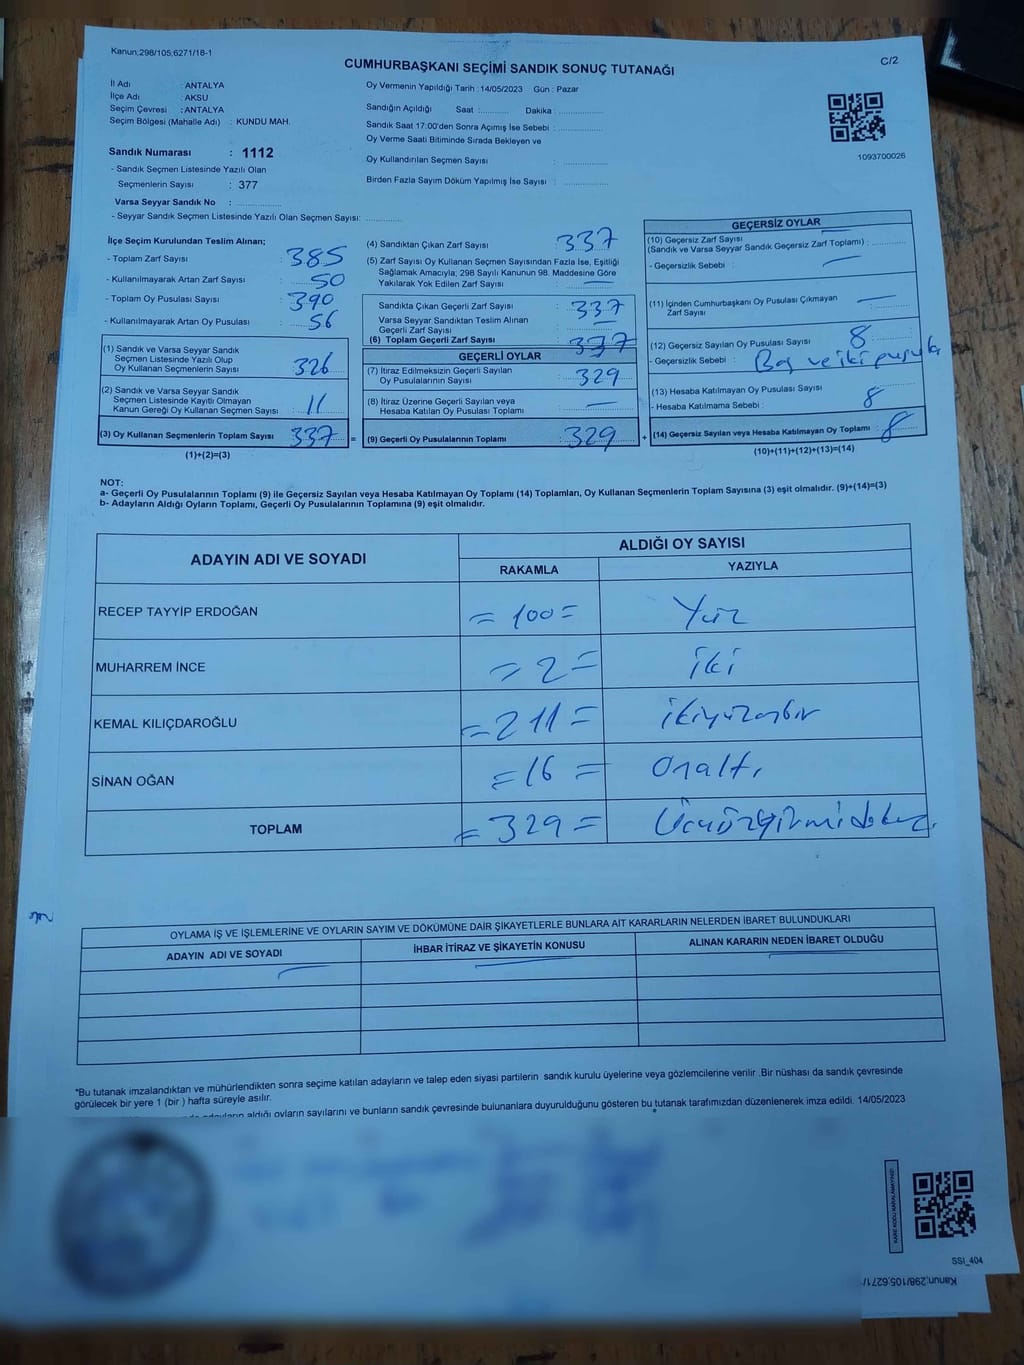 Kanun;298/105,6271/18-1
C/2
CUMHURBAŞKANI SEÇİMİ SANDIK SONUÇ TUTANAĞI
İl Adı : ANTALYA
İlçe Adı : AKSU
Seçim Çevresi : ANTALYA
Seçim Bölgesi (Mahalle Adı) : KUNDU MAH.
Sandık Numarası : 1112
- Sandık Seçmen Listesinde Yazılı Olan
Seçmenlerin Sayısı : 377
Varsa Seyyar Sandık No :
- Seyyar Sandık Seçmen Listesinde Yazılı Olan Seçmen Sayısı:
Oy Vermenin Yapıldığı Tarih : 14/05/2023 Gün : Pazar
Sandığın Açıldığı Saat : Dakika :
Sandık Saat 17.00'den Sonra Açımış İse Sebebi :
Oy Verme Saati Bitiminde Sırada Bekleyen ve
Oy Kullandırılan Seçmen Sayısı :
Birden Fazla Sayım Döküm Yapılmış İse Sayısı :
1093700026
İlçe Seçim Kurulundan Teslim Alınan;
- Toplam Zarf Sayısı : 385
- Kullanılmayarak Artan Zarf Sayısı : 50
- Toplam Oy Pusulası Sayısı : 390
- Kullanılmayarak Artan Oy Pusulası : 56
(1) Sandık ve Varsa Seyyar Sandık
Seçmen Listesinde Yazılı Olup
Oy Kullanan Seçmenlerin Sayısı : 326
(2) Sandık ve Varsa Seyyar Sandık
Seçmen Listesinde Kayıtlı Olmayan
Kanun Gereği Oy Kullanan Seçmen Sayısı : 11
(3) Oy Kullanan Seçmenlerin Toplam Sayısı : 337 =
(1)+(2)=(3)
(4) Sandıktan Çıkan Zarf Sayısı : 337
(5) Zarf Sayısı Oy Kullanan Seçmen Sayısından Fazla İse, Eşitliği
Sağlamak Amacıyla; 298 Sayılı Kanunun 98. Maddesine Göre
Yakılarak Yok Edilen Zarf Sayısı : —
Sandıkta Çıkan Geçerli Zarf Sayısı : 337
Varsa Seyyar Sandıktan Teslim Alınan
Geçerli Zarf Sayısı : —
(6) Toplam Geçerli Zarf Sayısı : 337
GEÇERLİ OYLAR
(7) İtiraz Edilmeksizin Geçerli Sayılan
Oy Pusulalarının Sayısı : 329
(8) İtiraz Üzerine Geçerli Sayılan veya
Hesaba Katılan Oy Pusulası Toplamı : —
(9) Geçerli Oy Pusulalarının Toplamı : 329 +
GEÇERSİZ OYLAR
(10) Geçersiz Zarf Sayısı
(Sandık ve Varsa Seyyar Sandık Geçersiz Zarf Toplamı) :
- Geçersizlik Sebebi : —
(11) İçinden Cumhurbaşkanı Oy Pusulası Çıkmayan
Zarf Sayısı : —
(12) Geçersiz Sayılan Oy Pusulası Sayısı : 8
- Geçersizlik Sebebi : Boş ve iki pusula
(13) Hesaba Katılmayan Oy Pusulası Sayısı
- Hesaba Katılmama Sebebi : 8
(14) Geçersiz Sayılan veya Hesaba Katılmayan Oy Toplamı : 8
(10)+(11)+(12)+(13)=(14)
NOT:
a- Geçerli Oy Pusulalarının Toplamı (9) ile Geçersiz Sayılan veya Hesaba Katılmayan Oy Toplamı (14) Toplamları, Oy Kullanan Seçmenlerin Toplam Sayısına (3) eşit olmalıdır. (9)+(14)=(3)
b- Adayların Aldığı Oyların Toplamı, Geçerli Oy Pusulalarının Toplamına (9) eşit olmalıdır.
ADAYIN ADI VE SOYADI
ALDIĞI OY SAYISI
RAKAMLA YAZIYLA
RECEP TAYYİP ERDOĞAN = 100 = Yüz
MUHARREM İNCE = 2 = iki
KEMAL KILIÇDAROĞLU = 211 = ikiyüzonbir
SİNAN OĞAN = 16 = Onaltı
TOPLAM = 329 = Üçyüzyirmidokuz
OYLAMA İŞ VE İŞLEMLERİNE VE OYLARIN SAYIM VE DÖKÜMÜNE DAİR ŞİKAYETLERLE BUNLARA AİT KARARLARIN NELERDEN İBARET BULUNDUKLARI
ADAYIN ADI VE SOYADI İHBAR İTİRAZ VE ŞİKAYETİN KONUSU ALINAN KARARIN NEDEN İBARET OLDUĞU
*Bu tutanak imzalandıktan ve mühürlendikten sonra seçime katılan adayların ve talep eden siyasi partilerin sandık kurulu üyelerine veya gözlemcilerine verilir .Bir nüshası da sandık çevresinde
görülecek bir yere 1 (bir ) hafta süreyle asılır.
adayların aldığı oyların sayılarını ve bunların sandık çevresinde bulunanlara duyurulduğunu gösteren bu tutanak tarafımızdan düzenlenerek imza edildi. 14/05/2023
KARE KODU KARALAMAYINIZ!
SSİ_404
Kanun;298/105,6271/